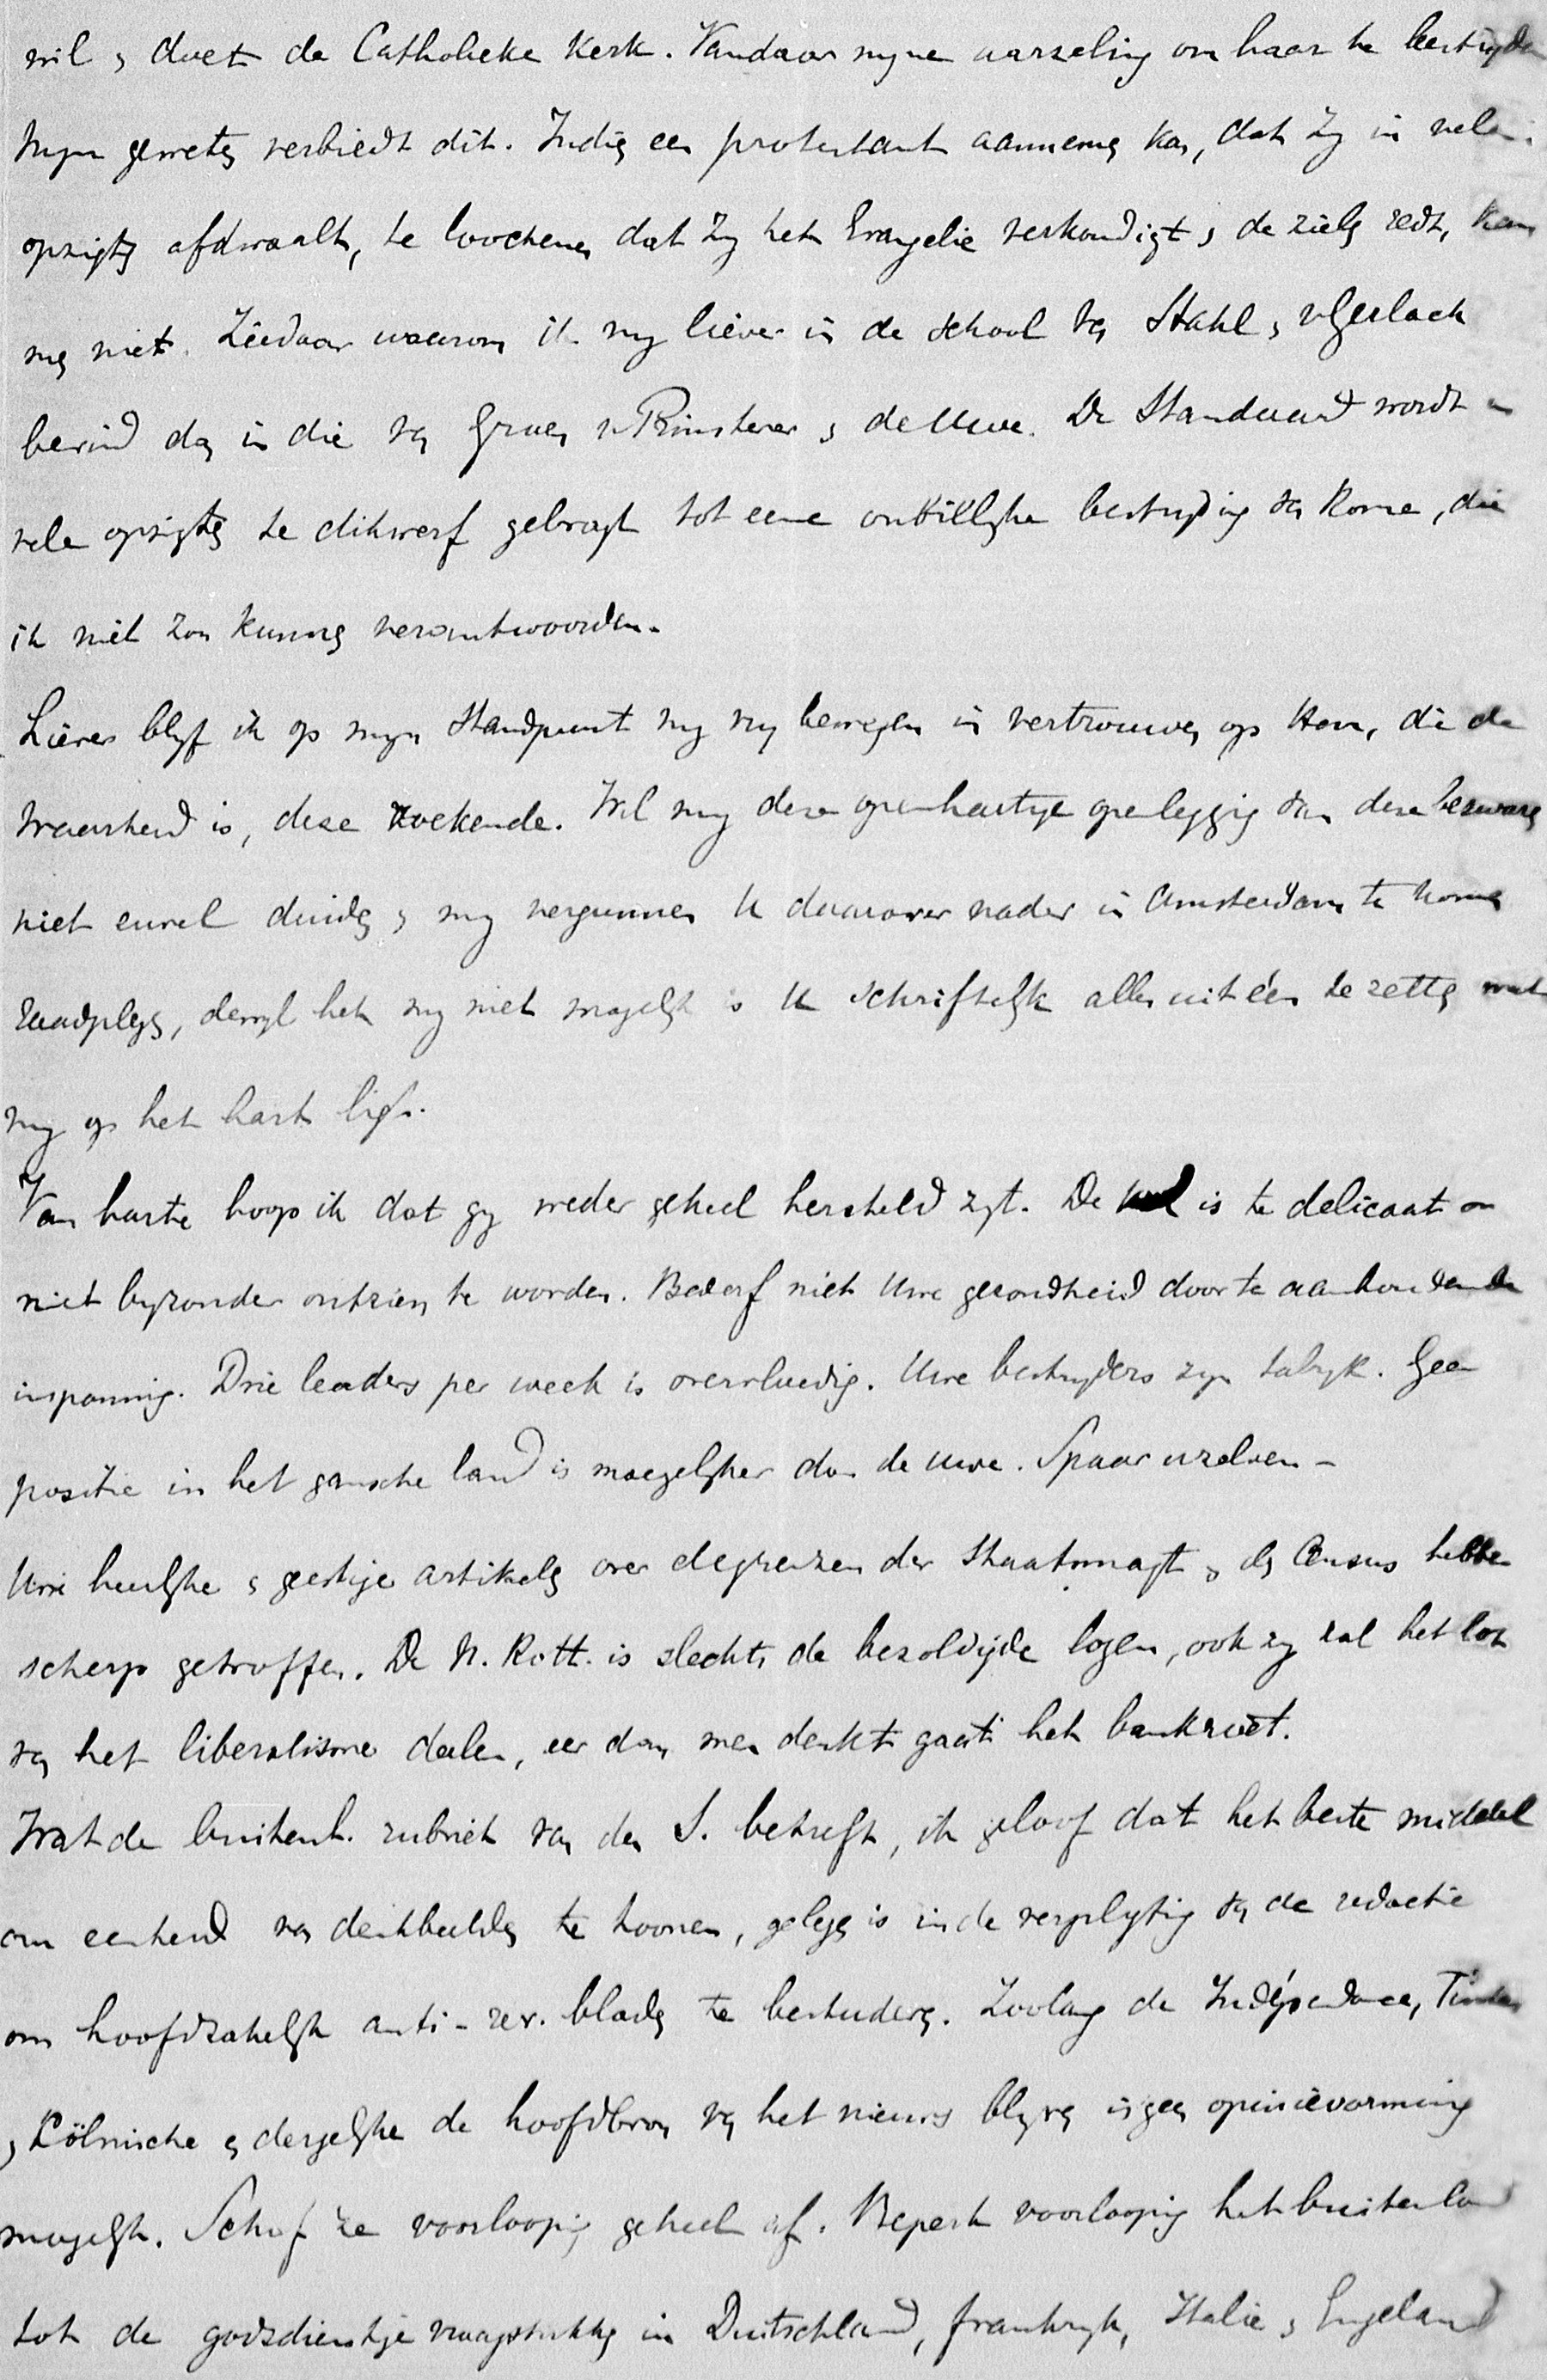 wil, & doet de Catholieke Kerk. Vandaar myne aarzeling om haar te bestryden
Myn geweten verbiedt dit. Indien een protestant aannemen kan, dat zy in vele
opzigten afdwaalt, te loochenen dat zy het Evangelie verkondigt & de zielen redt, kan
my niet. Ziedaar waarom ik my liever in de school van Stahl & v Gerlach
bevind dan in die van Groen v Prinsterer & de Uwe. De Standaard wordt in
vele opzigten te dikwerf gebragt tot eene onbillyke bestryding van Rome, die
ik niet zou kunnen verantwoorden.
Liever blyf ik op myn standpunt my vry bewegen in vertrouwen op Hem, die de
Waarheid is, deze zoekende. Wil my deze openhartige openlegging van deze bezwaren
niet euvel duiden & my vergunnen U daarover nader in Amsterdam te komen
raadplegen, dewyl het my niet mogelyk is U schriftelyk alles uitéén te zetten wat
my op het hart ligt.
Van harte hoop ik dat gy weder geheel hersteld zyt. De is te delicaat om
niet byzonder ontzien te worden. Bederf niet Uwe gezondheid door te aanhoudende
inspanning. Drie leaders per week is overvloedig. Uwe bestryders zyn talryk. Geen
positie in het gansche land is moeyelyker dan de uwe. Spaar uzelven –
Uwe heerlyke & geestige artikelen over de grenzen der Staatsmagt & den Census hebben
scherp getroffen. De N. Rott. is slechts de bezoldigde logen, ook zy zal het lot
van het liberalisme deelen, eer dan men denkt gaat het bankroet.
Wat de buitenl. rubriek van den S. betreft, ik geloof dat het beste middel
om eenheid van denkbeelden te toonen, gelegen is in de verpligting van de redactie
om hoofdzakelyk anti-rev. bladen te bestuderen. Zoolang de Indépendance, Times
, Kölnische & dergelyke de hoofdbron van het nieuws blyven is geen opinievorming
mogelyk. Schaf ze voorloopig geheel af. Beperk voorloopig het buitenland
tot de godsdienstige vraagstukken in Duitschland, frankryk, Italie & Engeland